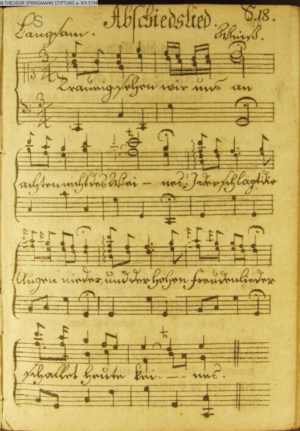 © THEODOR SPRINGMANN STIFTUNG
Abschiedslied S. 18.
Langsam.
Traurig sehen wir uns an
achten nicht des Wei – nes: Jeder schlägt die
Augen nieder, und der hohen Freudenlieder
schallet heute kei – – nes.